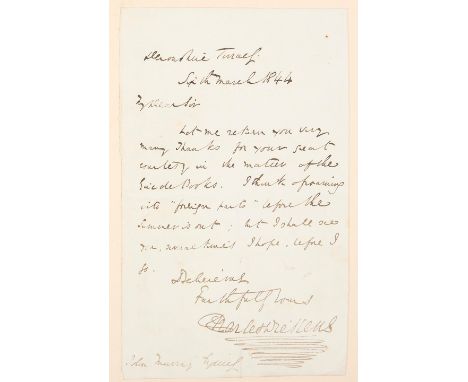 Devonshire Terrace
Sixth March 1844
My Dear Sir
Let me return you very
many Thanks for your great
courtesy in the matter of the
Guide Books. I think of going
into "foreign parts" before the
Summer is out; but I shall see
you, I hope, before I
go.
Believe me
Faithfully Yours
Charles Dickens
John Murray Esquire